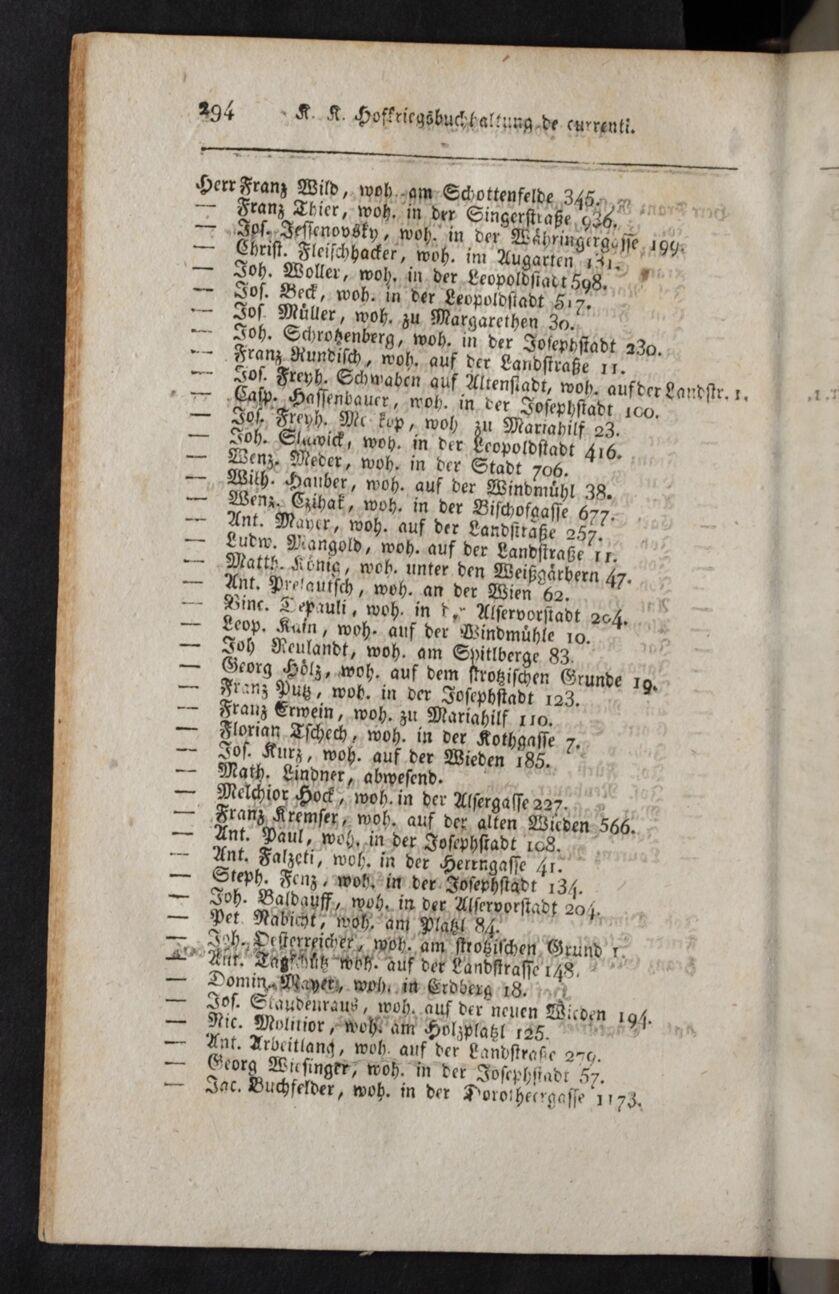 294 K. K. Hofkriegsbuchhaltung de currenti.
Herr Franz Wild, woh. am Schottenfelde 345.
— Franz Thier, woh. in der Singerstraße 936.
— Jos. Jessenovsky, woh. in der Währingergasse 199.
— Christ. Fleischhacker, woh. im Augarten 131.
— Joh. Woller, woh. in der Leopoldstadt 598.
— Jos. Beck, woh. in der Leopoldstadt 517.
— Jos Müller, woh. zu Margarethen 30.
— Joh. Schrotzenberg, woh. in der Josephstadt 230.
— Franz Rundisch, woh. auf der Landstraße 11.
— Jos. Freyh. Schwaben auf Altenstadt, woh. auf der Landstr. 1.
— Casp. Hassenbauer, woh. in der Josephstadt 100.
— Jos. Freyh. woh zu Mariahilf 23.
— Joh. Slawick, woh. in der Leopoldstadt 416.
— Wenz. Meder, woh. in der Stadt 706.
— Wilh. Hauber, woh. auf der Windmühl 38.
— Wenz. Czihak, woh. in der Bischofgasse 677.
— Ant. Mayer, woh. auf der Landstraße 257.
— Ludw. Mangold, woh. auf der Landstraße 11.
— Matth. König, woh. unter den Weißgärbern 47.
— Ant. Pretautsch, woh. an der Wien 62.
— Vinc. Depauli, woh. in der Alservorstadt 204.
— Leop. Kain, woh. auf der Windmühle 10.
— Joh Neulandt, woh. am Spitlberge 83.
— Georg Hölz, woh. auf dem strotzischen Grunde 19.
— Franz Putz, woh. in der Josephstadt 123.
— Franz Erwein, woh. zu Mariahilf 110.
— Florian Tschech, woh. in der Kothgasse 7.
— Jos. Kurz, woh. auf der Wieden 185.
— Math. Lindner, abwesend.
— Melchior Hock, woh. in der Alsergasse 227.
— Franz Kremser, woh. auf der alten Wieden 566.
— Ant. Paul, woh. in der Josephstadt 108.
— Ant. Falzeti, woh. in der Herrngasse 41.
— Steph. Fenz, woh. in der Josephstadt 134.
— Joh. Baldauff, woh. in der Alservorstadt 204.
— Pet Nabicht, woh. am Platzl 84.
— Joh. Oesterreicher, woh. am strotzischen Grund 1.
— Ant. woh. auf der Landstrasse 148.
— Domin. Mayer, woh. in Erdberg 18.
— Jos. Staudenraus, woh. auf der neuen Wieden 194.
— Nic. Molitior, woh. am Holzplatzl 125.
— Ant. Arbeitlang, woh. auf der Landstraße 279.
— Georg Wiesinger, woh. in der Josephstadt 57.
— Jac. Buchfelder, woh. in der Dorotheergasse 1173.